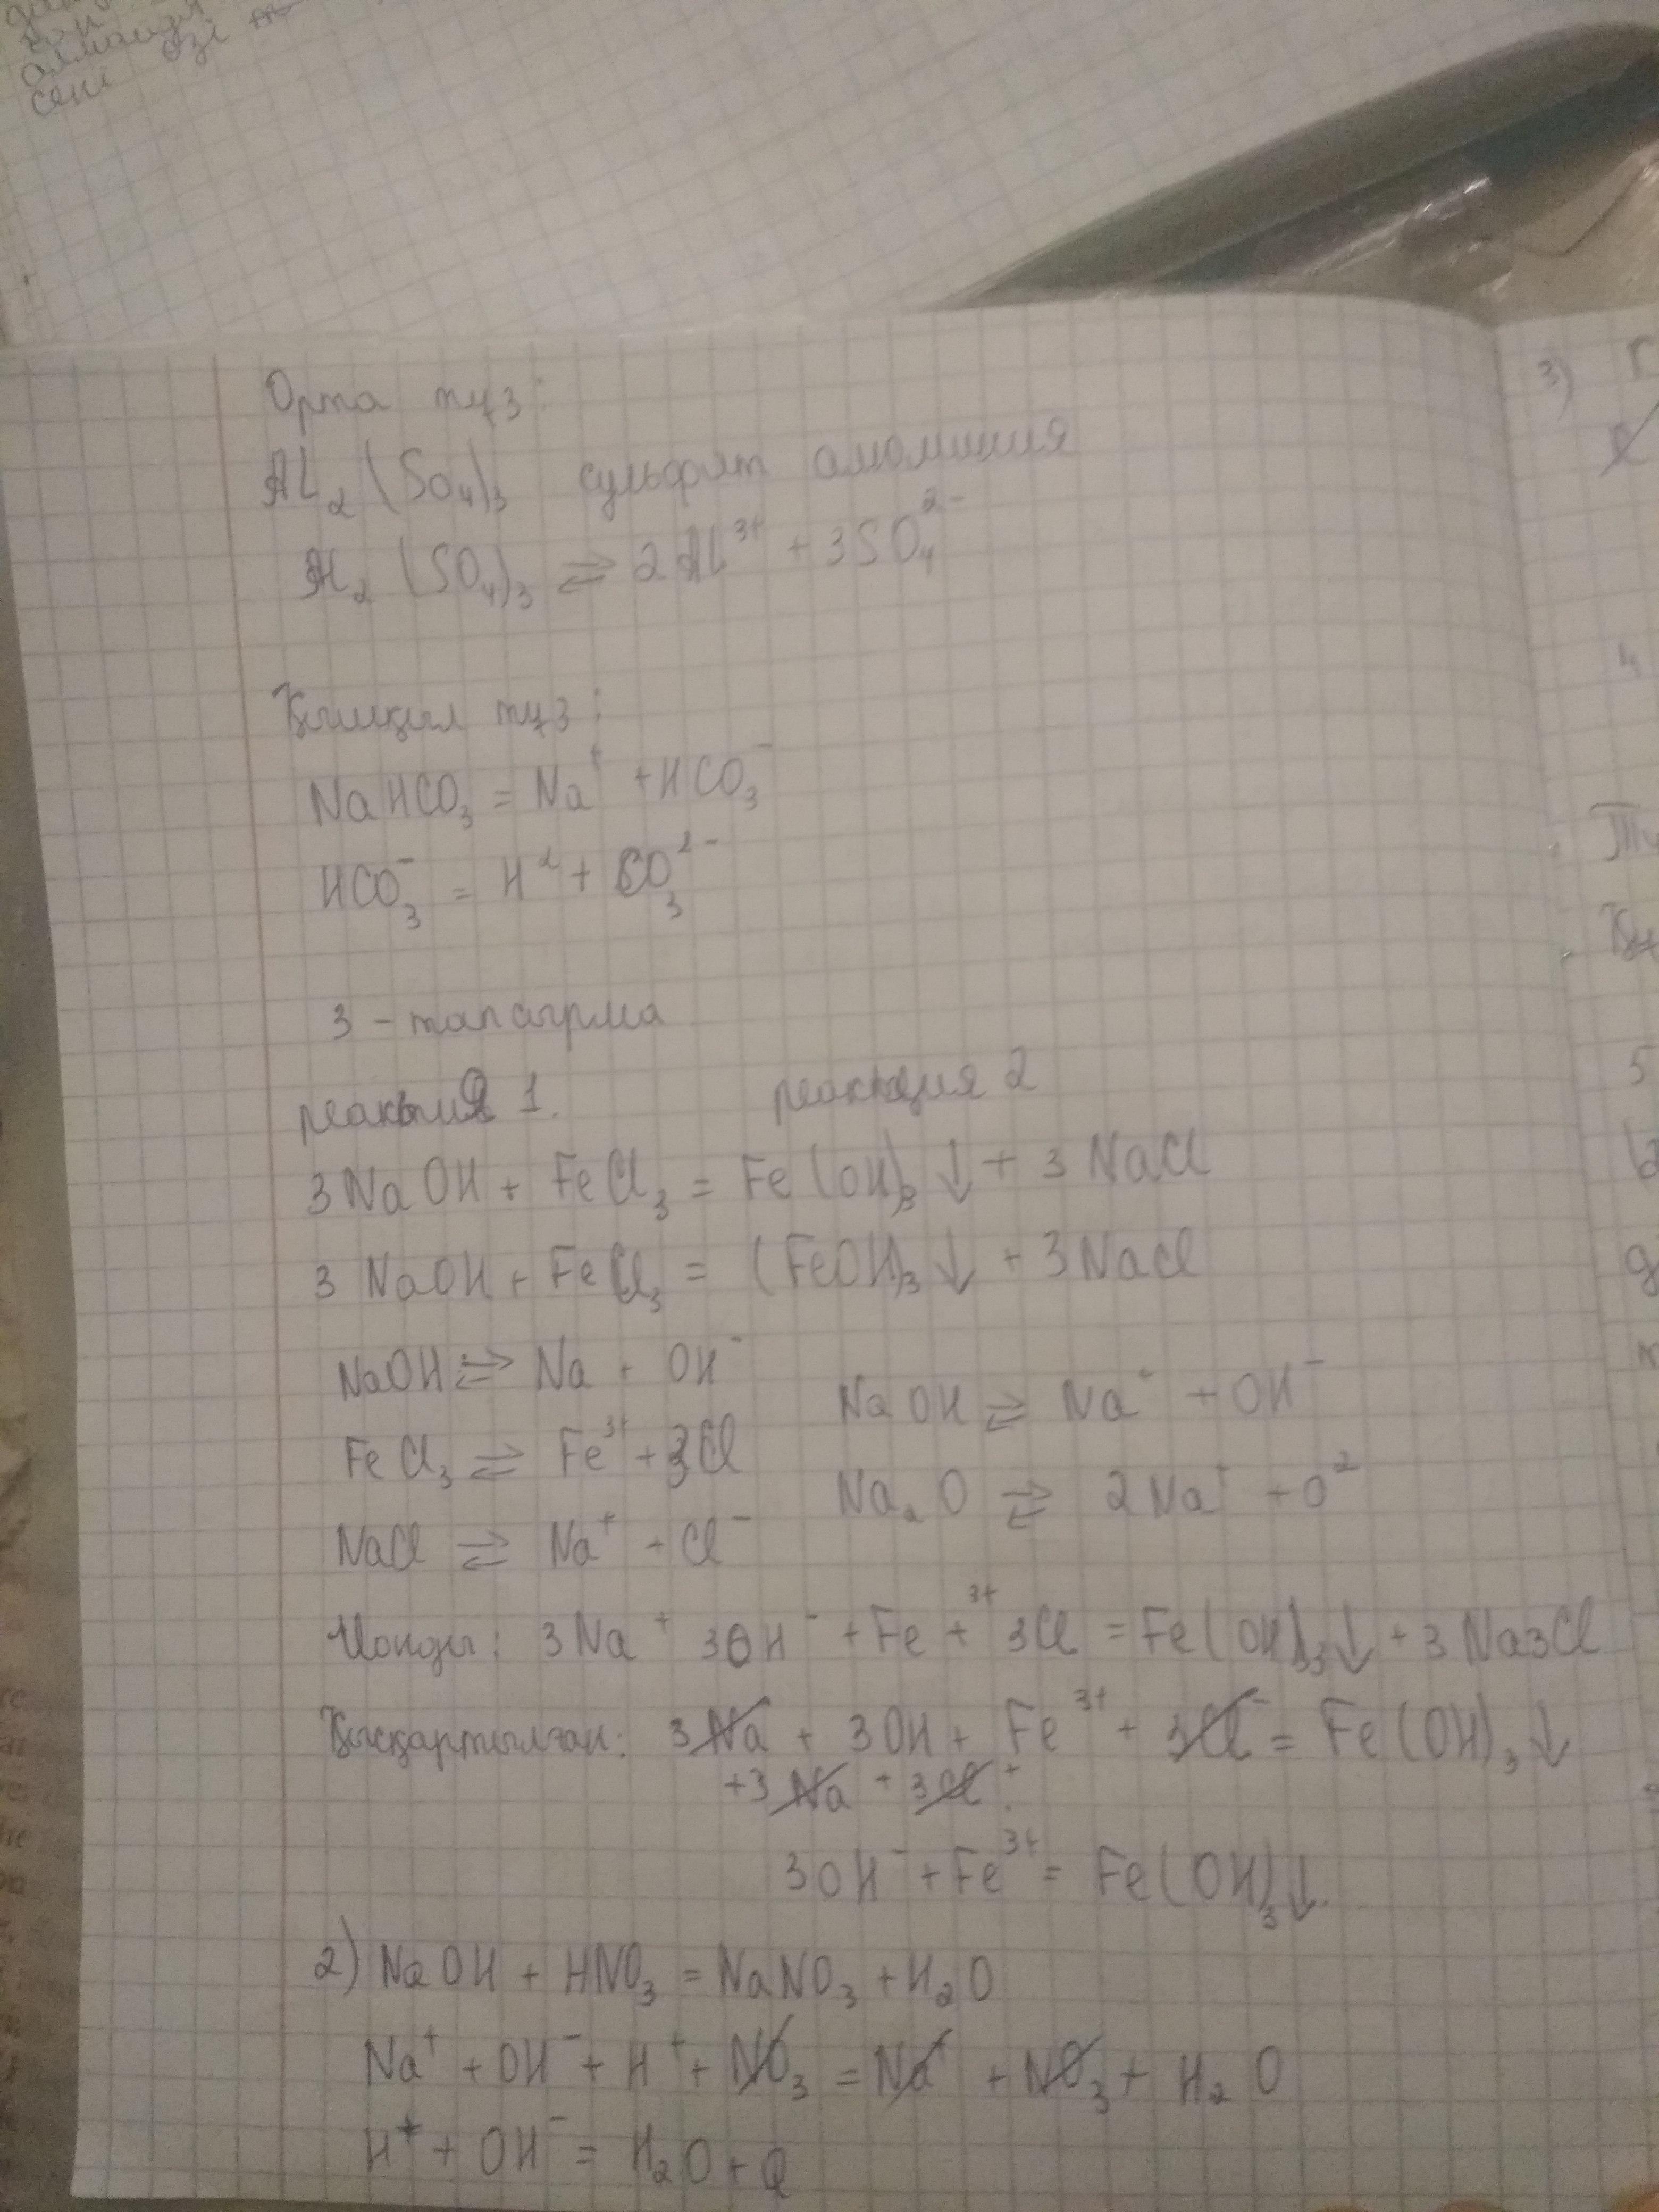 сені өзі
Орта тұз:
Al₂(SO₄)₃ сульфат алюминия
Al₂(SO₄)₃ ⇌ 2Al³⁺ + 3SO₄²⁻
Қышқыл тұз:
NaHCO₃ = Na⁺ + HCO₃⁻
HCO₃⁻ = H² + CO₃²⁻
3 - тапсырма
реакция 1. реакция 2
3NaOH + FeCl₃ = Fe(OH)₃↓ + 3NaCl
3NaOH + FeCl₃ = (FeOH)₃↓ + 3NaCl
NaOH ⇌ Na + OH⁻
NaOH ⇌ Na⁺ + OH⁻
FeCl₃ ⇌ Fe³⁺ + 3Cl
Na₂O ⇌ 2Na⁺ + O²
NaCl ⇌ Na⁺ + Cl⁻
Ионды: 3Na⁺ 3OH⁻ + Fe +³⁺ 3Cl = Fe(OH)₃↓ + 3Na3Cl
Қысқартылған: 3Na + 3OH + Fe³⁺ + 3Cl⁻ = Fe(OH)₃↓
+3Na + 3Cl +
3OH⁻ + Fe³⁺ = Fe(OH)₃↓
2) NaOH + HNO₃ = NaNO₃ + H₂O
Na⁺ + OH⁻ + H⁺ + NO₃ = Na⁺ + NO₃ + H₂O
H⁺ + OH⁻ = H₂O + Q
3)
5